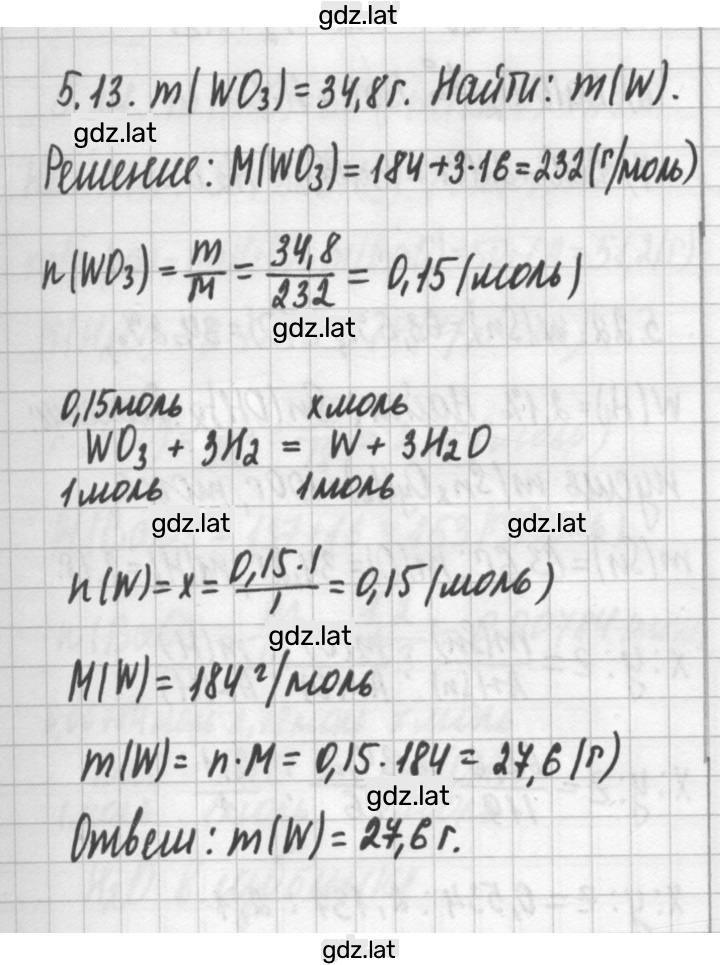 gdz.lat
5.13. m(WO₃)=34,8г. Найти: m(W).
gdz.lat
Решение: M(WO₃)=184+3·16=232(г/моль)
n(WO₃)=m/M=34,8/232=0,15(моль)
gdz.lat
0,15моль xмоль
WO₃ + 3H₂ = W + 3H₂O
1моль 1моль
gdz.lat gdz.lat
n(W)=x=0,15·1/1=0,15(моль)
gdz.lat
M(W)=184г/моль
m(W)= n·M=0,15·184=27,6(г)
gdz.lat
Ответ: m(W)=27,6г.
gdz.lat